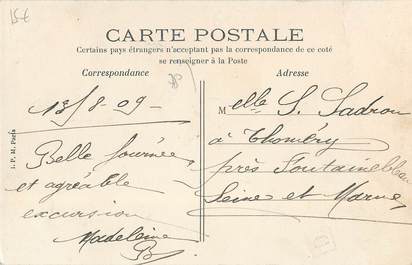 15€
CARTE POSTALE
Certains pays étrangers n'acceptant pas la correspondance de ce coté
se renseigner à la Poste
Correspondance
Adresse
I. P. M. Paris
18/8-09-
Belle journée
et agréable
excursion
Madeleine
B
Melle S. Sadron
à Thoméry
près Fontainebleau
Seine et Marne